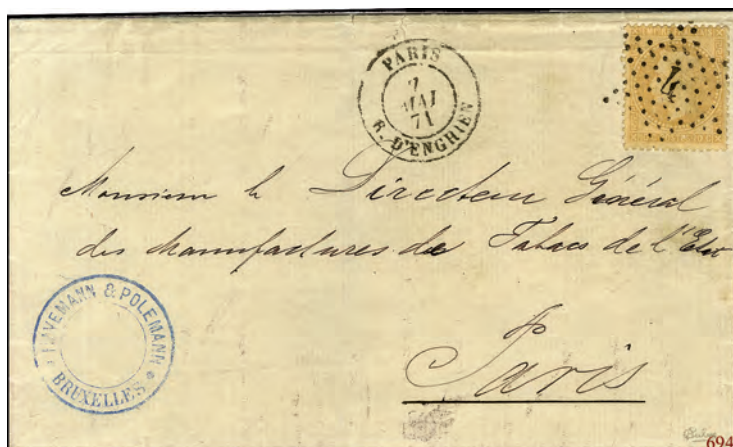 PARIS
7
MAI
71
R. D'ENGHIEN
4
Monsieur le Directeur Général
des Manufactures de Tabacs de l'Etat
HAVEMANN & POLEMANN
BRUXELLES
Paris
694